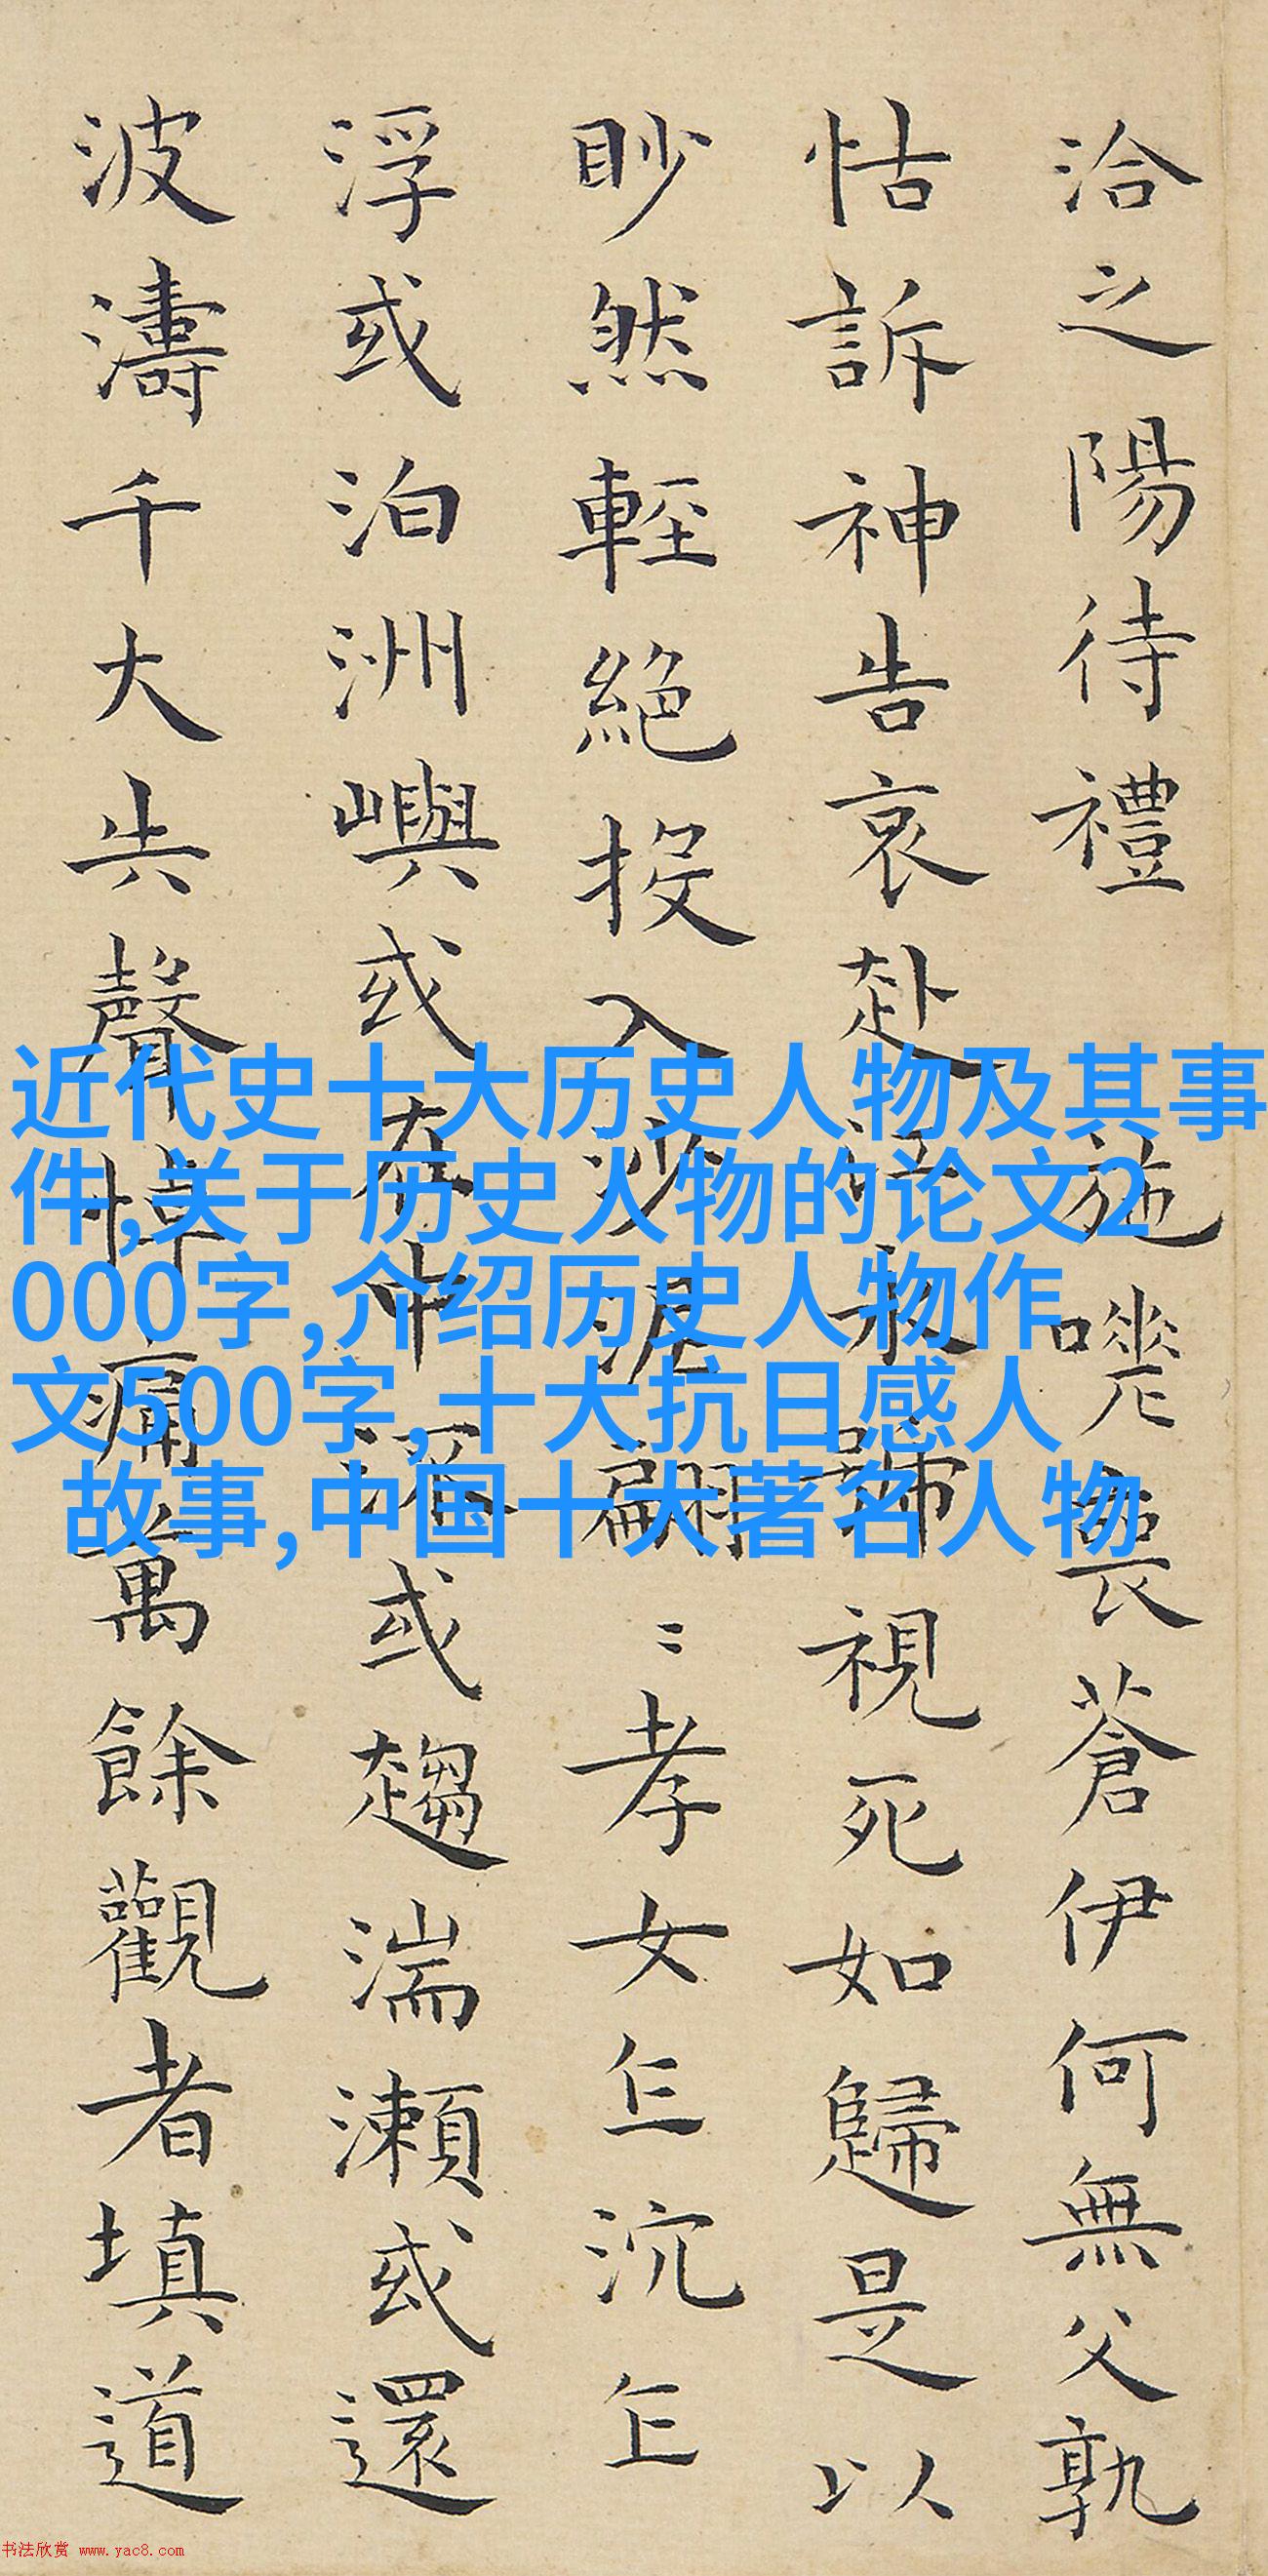 洽之陽待禮施嗟喪蒼伊何無父孰
怙訴神告哀赴江永號視死如歸是以
眇然輕絕投入沙泥翩〻孝女乍沉乍
浮或泊洲嶼或在中流或趨湍瀨或還
波濤千大失聲悼痛萬餘觀者填道
近代史十大历史人物及其事
件,关于历史人物的论文2
000字,介绍历史人物作
文500字,十大抗日感人
故事,中国十大著名人物
书法欣赏 www.yac8.com